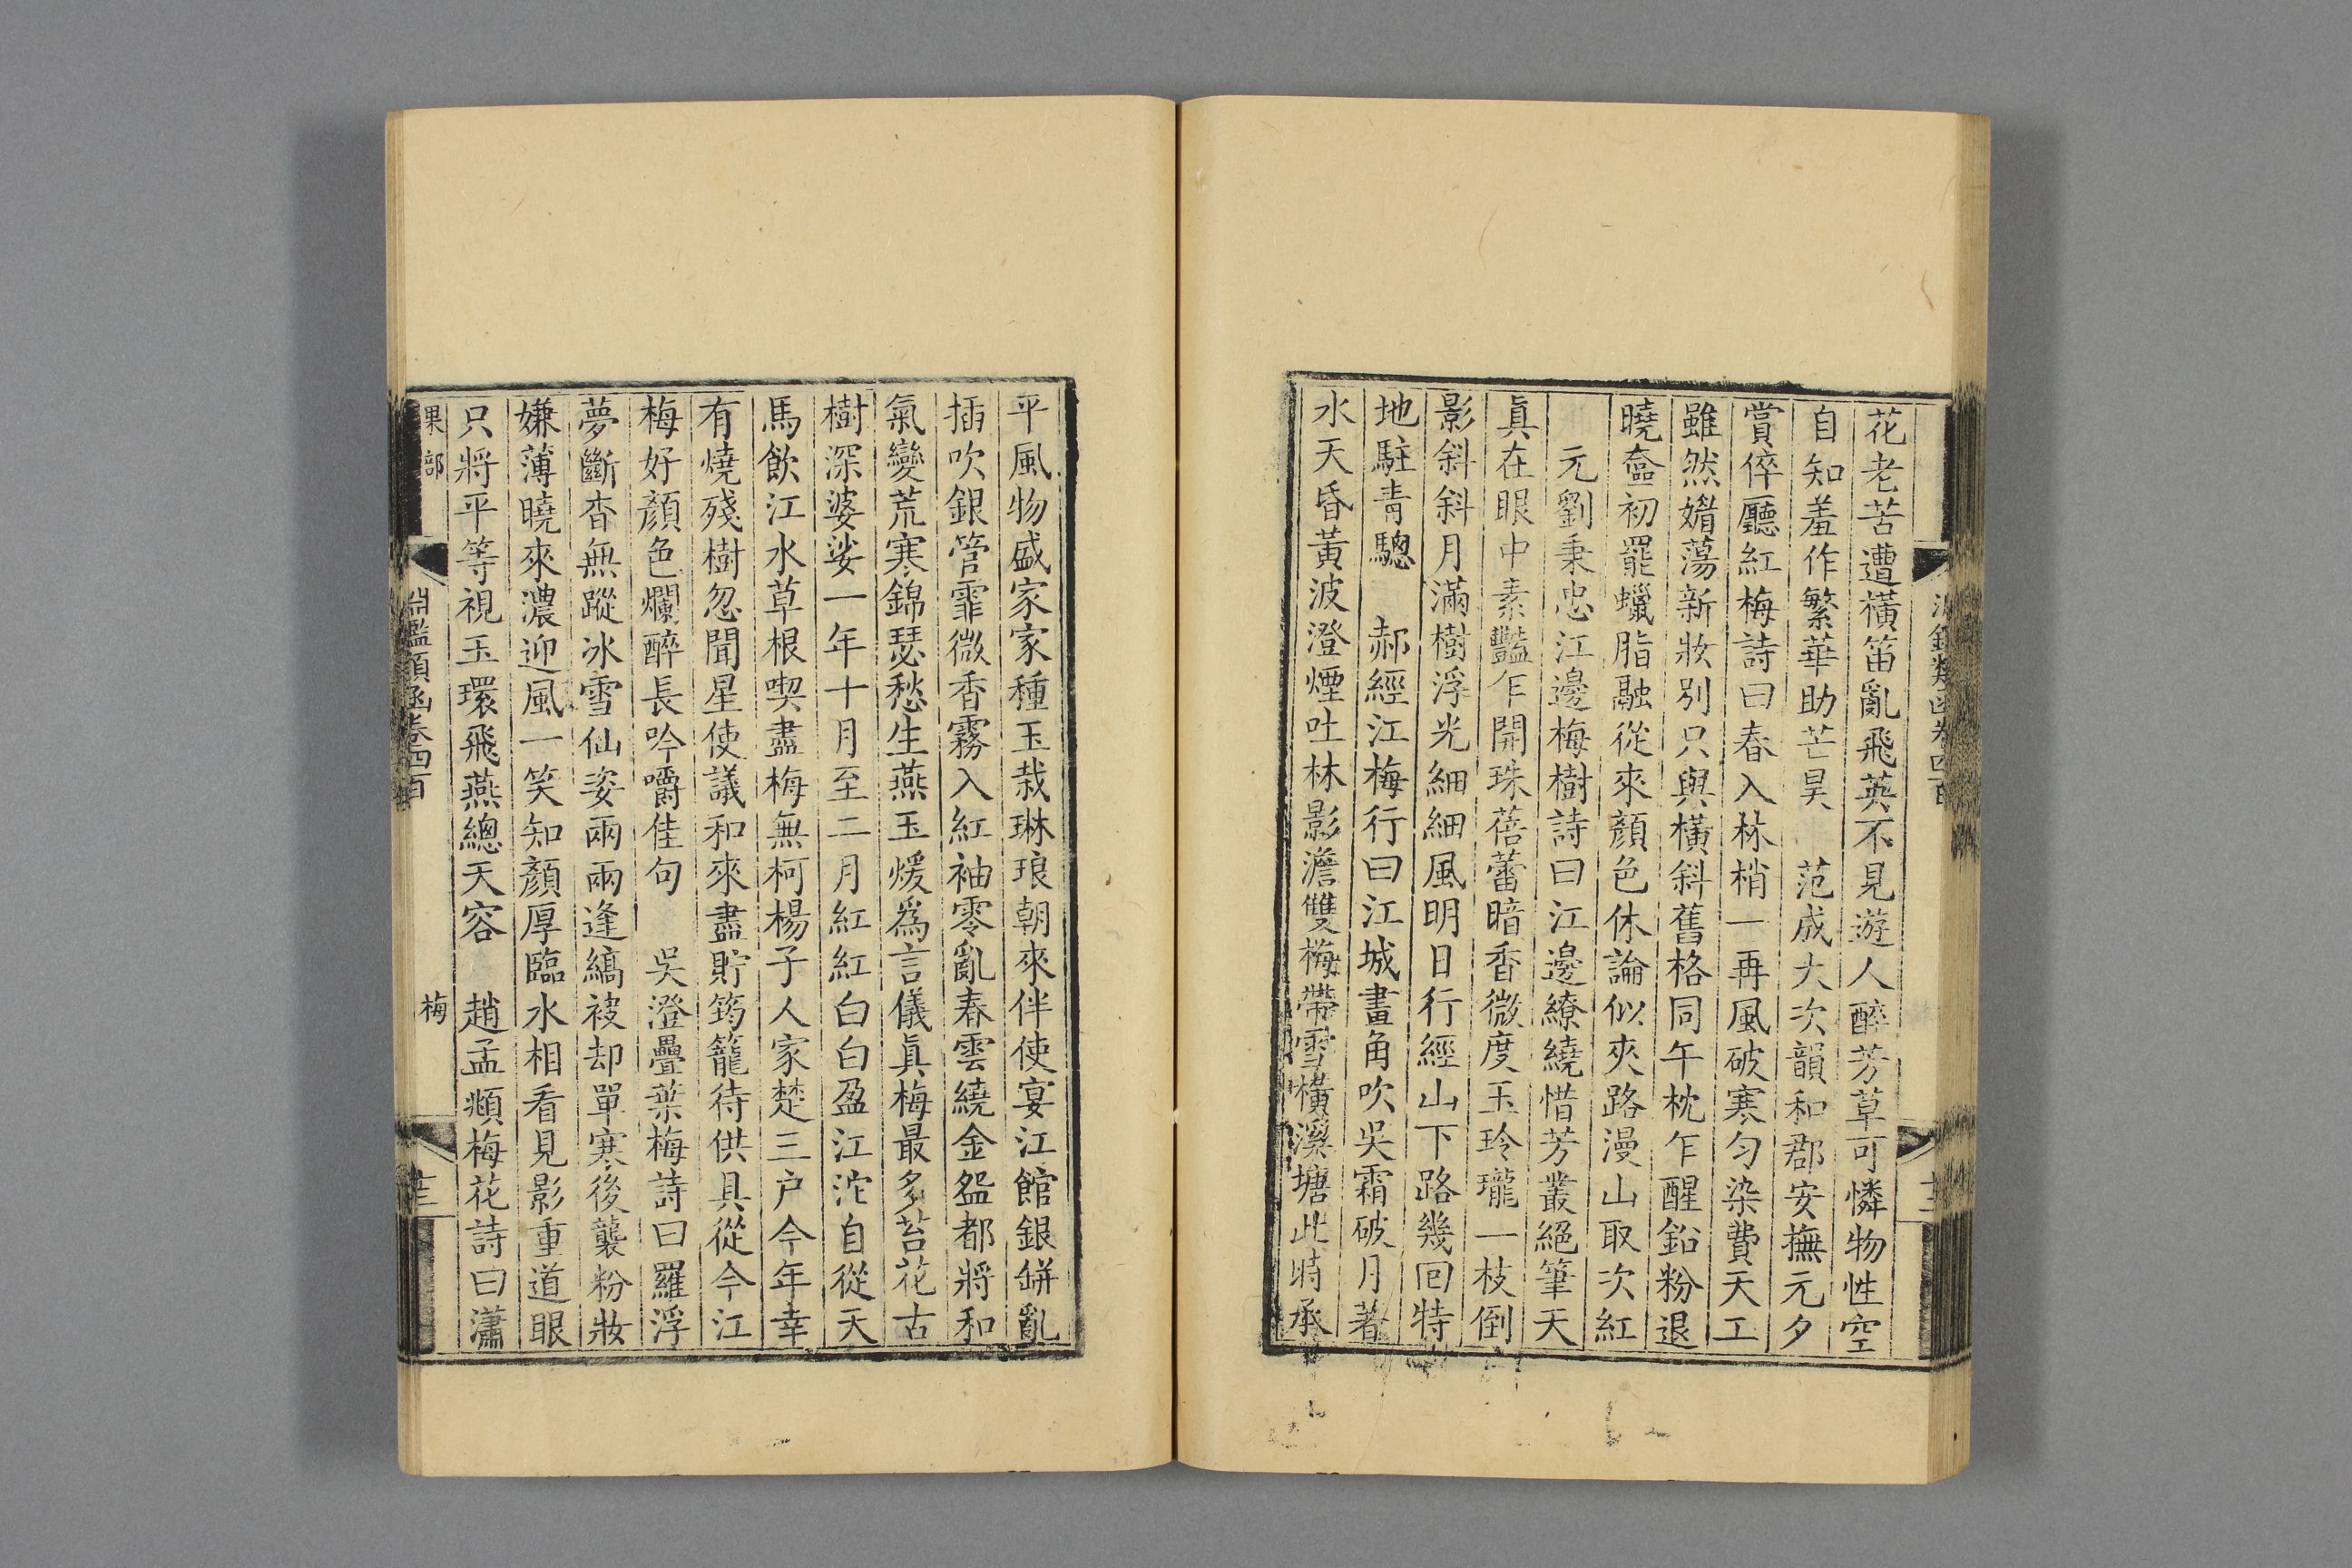 花老苦遭橫笛亂飛英不見遊人醉芳草可憐物性空
自知羞作繁華助芒昊　范成大次韻和郡安撫元夕
賞倅廳紅梅詩曰春入林梢一再風破寒勻染費天工
雖然媚蕩新妝別只與橫斜舊格同午枕乍醒鉛粉退
曉奩初罷蠟脂融從來顏色休論似夾路漫山取次紅
元劉秉忠江邊梅樹詩曰江邊繚繞惜芳叢絕筆天
眞在眼中素豔乍開珠蓓蕾暗香微度玉玲瓏一枝倒
影斜斜月滿樹浮光細細風明日行經山下路幾回特
地駐靑驄　郝經江梅行曰江城畫角吹吳霜破月著
水天昏黃波澄煙吐林影澹雙梅帶雪橫溪塘此時承
平風物盛家家種玉栽琳琅朝來伴使宴江館銀缾亂
插吹銀管霏微香霧入紅袖零亂春雲繞金盌都將和
氣變荒寒錦瑟愁生燕玉煖爲言儀眞梅最多苔花古
樹深婆娑一年十月至二月紅紅白白盈江沱自從天
馬飲江水草根喫盡梅無柯楊子人家楚三戶今年幸
有燒殘樹忽聞星使議和來盡貯筠籠待供具從今江
梅好顏色爛醉長吟嚼佳句　吳澄疊葉梅詩曰羅浮
夢斷杳無蹤冰雪仙姿兩兩逢縞袂却單寒後襲粉妝
嫌薄曉來濃迎風一笑知顏厚臨水相看見影重道眼
只將平等視玉環飛燕總天容　趙孟頫梅花詩曰瀟
果部　淵鑑類函卷四百　梅